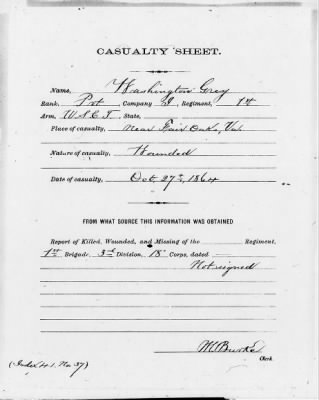 CASUALTY SHEET.
Name, Washington Grey
Rank, Pvt, Company I, Regiment, 1st
Arm, U.S.C.T, State,
Place of casualty, Near Fair Oaks, Va.
Nature of casualty, Wounded
Date of casualty, Oct 27th, 1864
FROM WHAT SOURCE THIS INFORMATION WAS OBTAINED
Report of Killed, Wounded, and Missing of the Regiment,
1st Brigade, 3d Division, 18 Corps, dated
Not signed
M. Burke
Clerk.
(Index 41. No. 37)